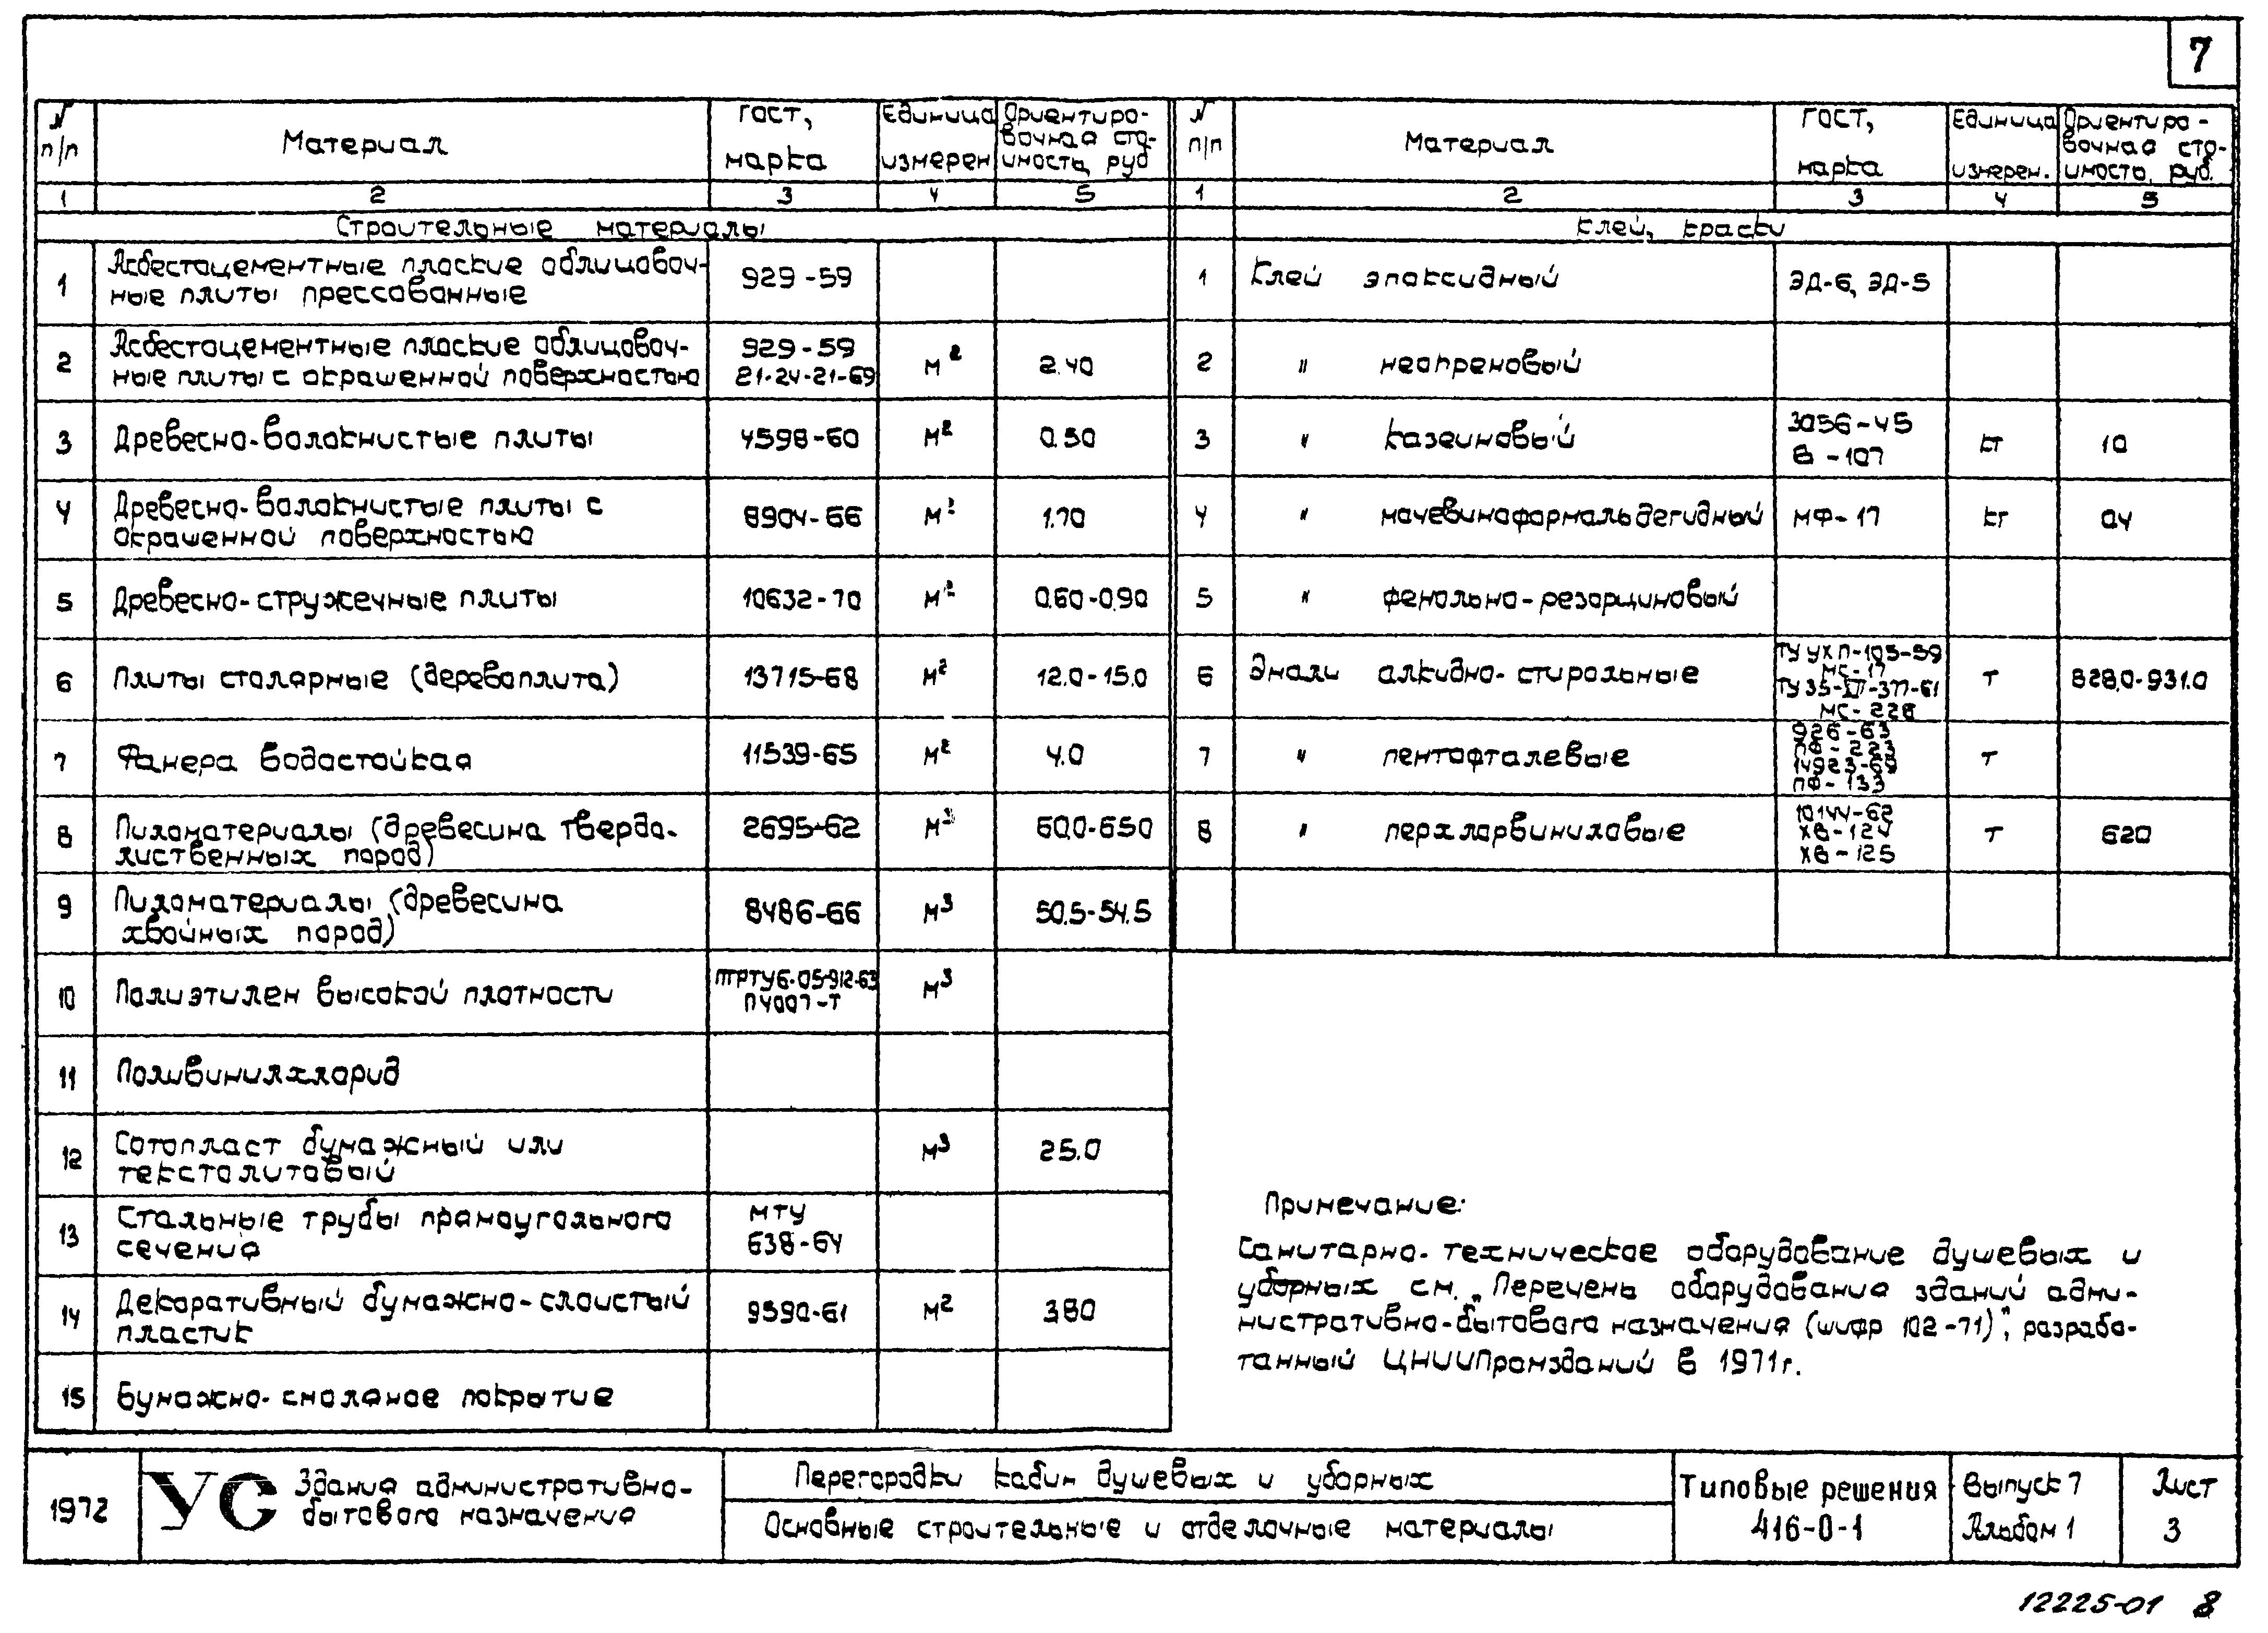 7
N п/п
Материал
ГОСТ, марка
Единица измерен
Ориентировочная стоимость, руб
1 2 3 4 5
Строительные материалы
1 Асбестоцементные плоские облицовоч- 929-59
ные плиты прессованные
2 Асбестоцементные плоские облицовоч- 929-59 м² 2.40
ные плиты с окрашенной поверхностью 21-24-21-69
3 Древесно-волокнистые плиты 4598-60 м² 0.50
4 Древесно-волокнистые плиты с 8904-66 м² 1.70
окрашенной поверхностью
5 Древесно-стружечные плиты 10632-70 м² 0.60-0.90
6 Плиты столярные (деревоплита) 13715-68 м² 12.0-15.0
7 Фанера водостойкая 11539-65 м² 4.0
8 Пиломатериалы (древесина твердо- 2695-62 м³ 60.0-65.0
лиственных пород)
9 Пиломатериалы (древесина 8486-66 м³ 50.5-54.5
хвойных пород)
10 Полиэтилен высокой плотности МРТУ6-05-912-63 м³
П4007-Т
11 Поливинилхлорид
12 Сотопласт бумажный или м³ 25.0
текстолитовый
13 Стальные трубы прямоугольного МТУ
сечения 638-64
14 Декоративный бумажно-слоистый 9590-61 м² 3.80
пластик
15 Бумажно-смоляное покрытие
N п/п
Материал
ГОСТ, марка
Единица измерен.
Ориентировочная стоимость, руб.
1 2 3 4 5
Клей, краски
1 Клей эпоксидный ЭД-6, ЭД-5
2 " неопреновый
3 " казеиновый 3056-45 кг 1.0
В-107
4 " мочевиноформальдегидный МФ-17 кг 0.4
5 " фенольно-резорциновый
6 Эмали алкидно-стирольные ТУ УХП-105-59 т 828.0-931.0
МС-17
ТУ35-XII-377-61
МС-226
7 " пентафталевые 926-63 т
ПФ-223
14923-69
ПФ-133
8 " перхлорвиниловые 10144-62 т 620
ХВ-124
ХВ-125
Примечание:
Санитарно-техническое оборудование душевых и
уборных см. „Перечень оборудования зданий адми-
нистративно-бытового назначения (шифр 102-71)", разрабо-
танный ЦНИИПромзданий в 1971г.
1972
УС
Здания административно-
бытового назначения
Перегородки кабин душевых и уборных
Основные строительные и отделочные материалы
Типовые решения
416-0-1
Выпуск 7
Альбом 1
Лист
3
12225-01 8